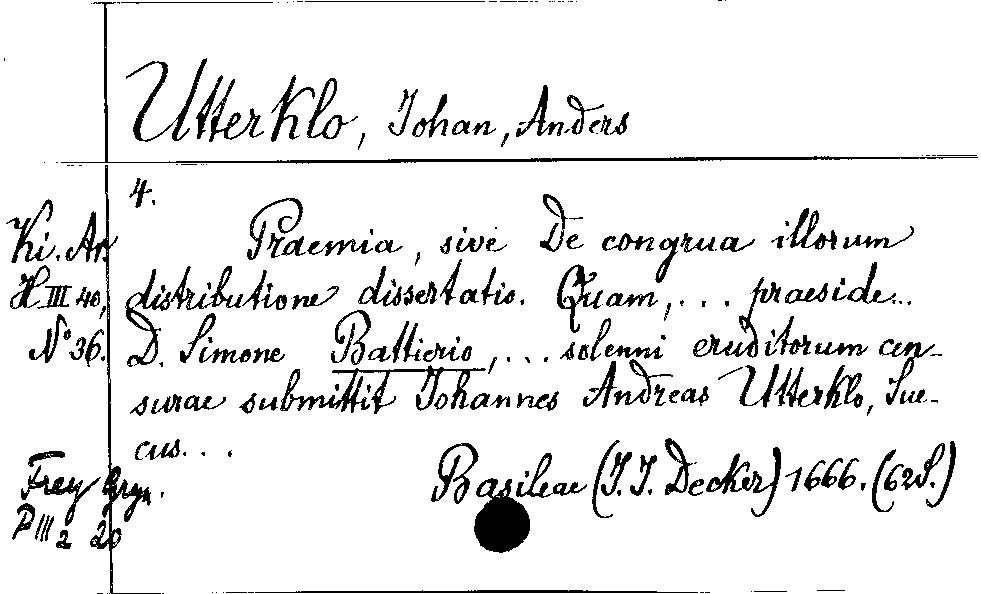 Utterklo, Johan, Anders
4.
Praemia, sive De congrua illorum
distributione dissertatio. Quam, ... praeside...
D. Simone Battierio, ... solenni eruditorum cen-
surae submittit Johannes Andreas Utterklo, Sue-
cus...
Basileae (J. J. Decker) 1666. (62 S.)
Ki. Ar.
H III 40,
N° 36.
Frey Gryn.
P III 2 20